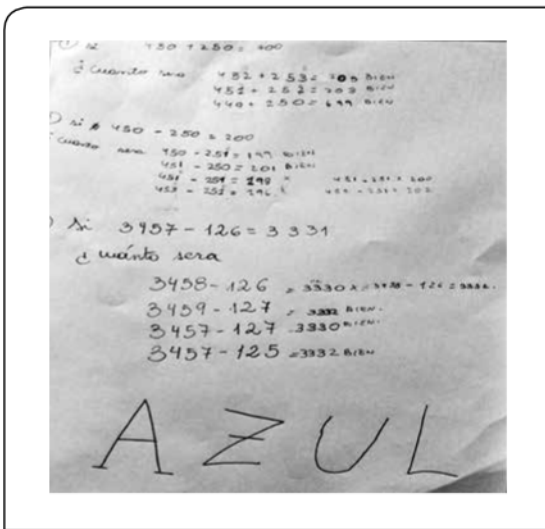 si 450 + 250 = 700
¿ Cuanto sera 452 + 253 = 705 BIEN
451 + 252 = 703 BIEN
= 699 BIEN
si 450 - 250 = 200
cuanto sera 450 - 251 = 199 BIEN
451 - 250 = 201 BIEN
451 - 251 = 198 x 451 - 251 = 200
si 3457 - 126 = 3331
¿ cuánto sera
3458 - 126 = 3330 x = 3458 - 126 = 3332.
3459 - 127 = 3332 BIEN.
3457 - 127 3330 BIEN.
3457 - 125 = 3332 BIEN
AZUL